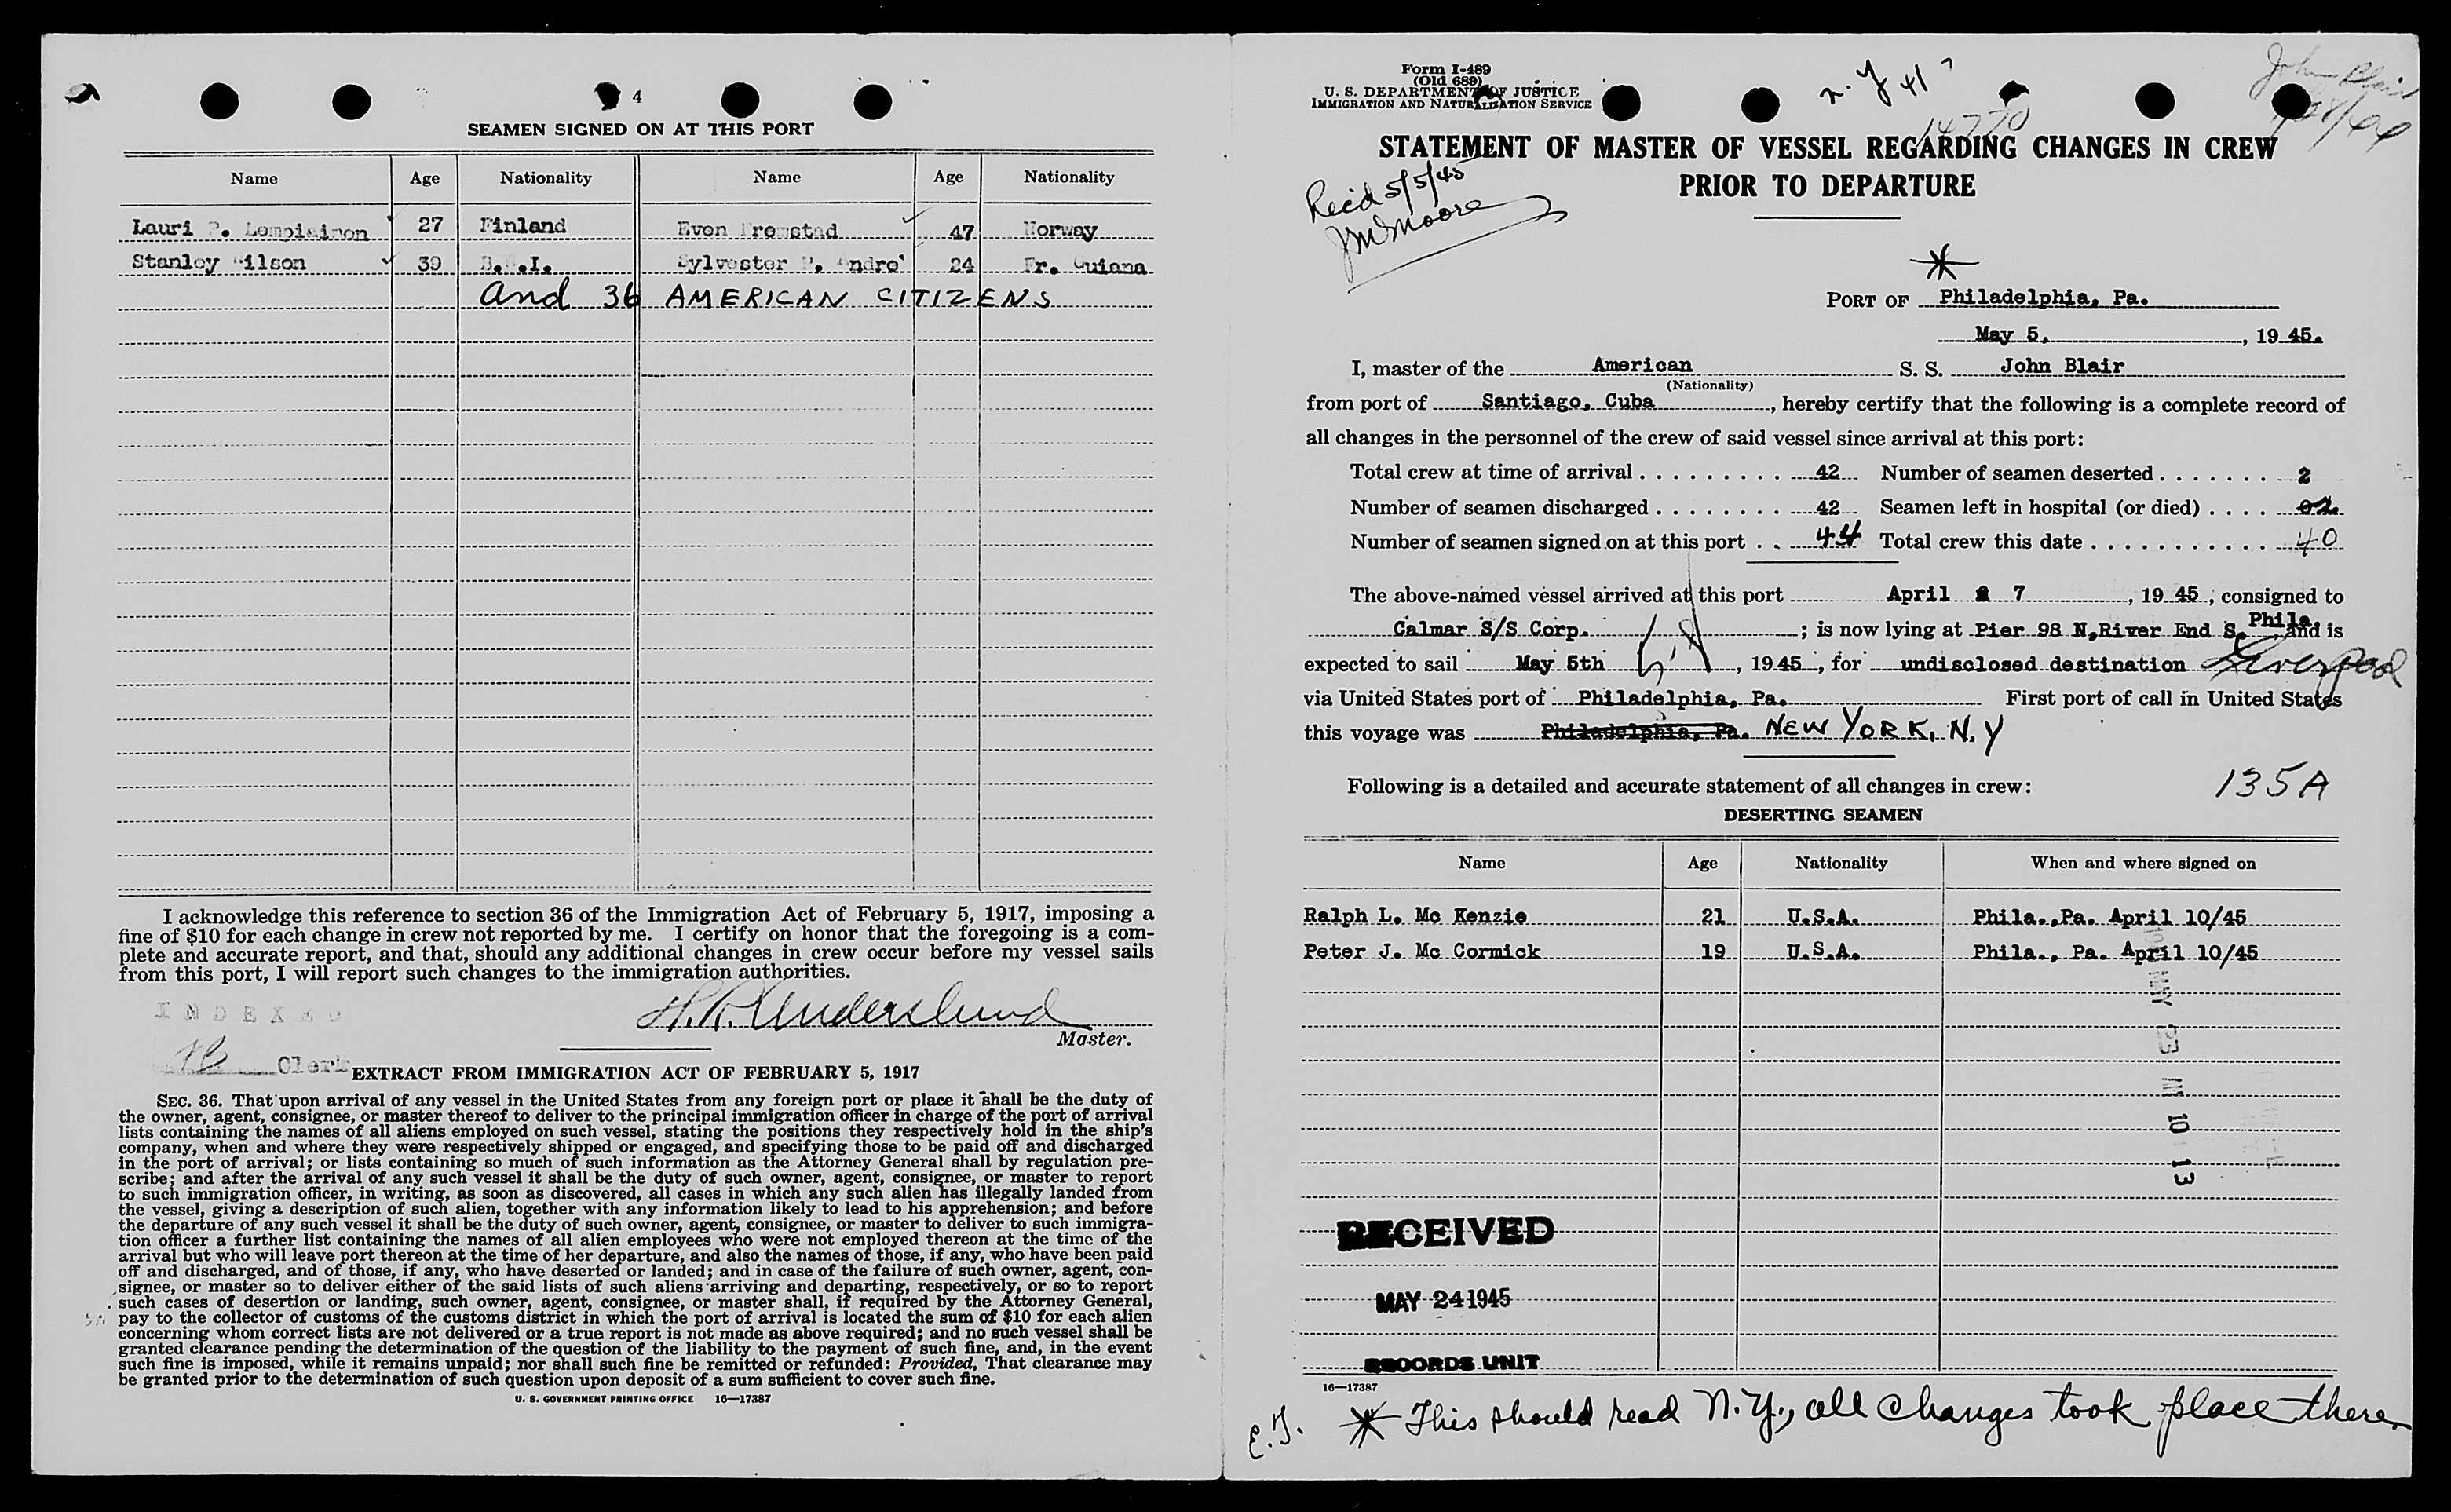 4
SEAMEN SIGNED ON AT THIS PORT
Name Age Nationality Name Age Nationality
Lauri P. 27 Finland Even 47 Norway
Stanley Wilson 39 B.W.I. Sylvester P. Andre' 24 Fr. Guiana
and 36 AMERICAN CITIZENS
I acknowledge this reference to section 36 of the Immigration Act of February 5, 1917, imposing a
fine of $10 for each change in crew not reported by me. I certify on honor that the foregoing is a com-
plete and accurate report, and that, should any additional changes in crew occur before my vessel sails
from this port, I will report such changes to the immigration authorities.
INDEXED
Master.
Clerk
EXTRACT FROM IMMIGRATION ACT OF FEBRUARY 5, 1917
SEC. 36. That upon arrival of any vessel in the United States from any foreign port or place it shall be the duty of
the owner, agent, consignee, or master thereof to deliver to the principal immigration officer in charge of the port of arrival
lists containing the names of all aliens employed on such vessel, stating the positions they respectively hold in the ship's
company, when and where they were respectively shipped or engaged, and specifying those to be paid off and discharged
in the port of arrival; or lists containing so much of such information as the Attorney General shall by regulation pre-
scribe; and after the arrival of any such vessel it shall be the duty of such owner, agent, consignee, or master to report
to such immigration officer, in writing, as soon as discovered, all cases in which any such alien has illegally landed from
the vessel, giving a description of such alien, together with any information likely to lead to his apprehension; and before
the departure of any such vessel it shall be the duty of such owner, agent, consignee, or master to deliver to such immigra-
tion officer a further list containing the names of all alien employees who were not employed thereon at the time of the
arrival but who will leave port thereon at the time of her departure, and also the names of those, if any, who have been paid
off and discharged, and of those, if any, who have deserted or landed; and in case of the failure of such owner, agent, con-
signee, or master so to deliver either of the said lists of such aliens arriving and departing, respectively, or so to report
such cases of desertion or landing, such owner, agent, consignee, or master shall, if required by the Attorney General,
pay to the collector of customs of the customs district in which the port of arrival is located the sum of $10 for each alien
concerning whom correct lists are not delivered or a true report is not made as above required; and no such vessel shall be
granted clearance pending the determination of the question of the liability to the payment of such fine, and, in the event
such fine is imposed, while it remains unpaid; nor shall such fine be remitted or refunded: Provided, That clearance may
be granted prior to the determination of such question upon deposit of a sum sufficient to cover such fine.
U. S. GOVERNMENT PRINTING OFFICE 16—17387
Form I-489
(Old 689)
U. S. DEPARTMENT OF JUSTICE
IMMIGRATION AND NATURALIZATION SERVICE
n. y 41
John Blair
14770
STATEMENT OF MASTER OF VESSEL REGARDING CHANGES IN CREW
PRIOR TO DEPARTURE
Recd 5/5/45
JM Moore
*
PORT OF Philadelphia, Pa.
May 5, , 19 45.
I, master of the American S. S. John Blair
(Nationality)
from port of Santiago, Cuba , hereby certify that the following is a complete record of
all changes in the personnel of the crew of said vessel since arrival at this port:
Total crew at time of arrival . . . . . . . . . . 42 Number of seamen deserted . . . . . . . 2
Number of seamen discharged . . . . . . . . 42 Seamen left in hospital (or died) . . . .
Number of seamen signed on at this port . . 44 Total crew this date . . . . . . . . . . . 40
The above-named vessel arrived at this port April 7 , 19 45 , consigned to
Calmar S/S Corp. ; is now lying at Pier 98 N,River End S. Phila. and is
expected to sail May 5th , 1945 , for undisclosed destination Liverpool
via United States port of Philadelphia, Pa. First port of call in United States
this voyage was Philadelphia, Pa. NEW YORK, N.Y
Following is a detailed and accurate statement of all changes in crew: 135A
DESERTING SEAMEN
Name Age Nationality When and where signed on
Ralph L. Mc Kenzie 21 U.S.A. Phila.,Pa. April 10/45
Peter J. Mc Cormick 19 U.S.A. Phila., Pa. April 10/45
MAY 23 AM 10 13
RECEIVED
MAY 24 1945
RECORDS UNIT
16—17387
E.J. * This should read N.Y., all changes took place there.